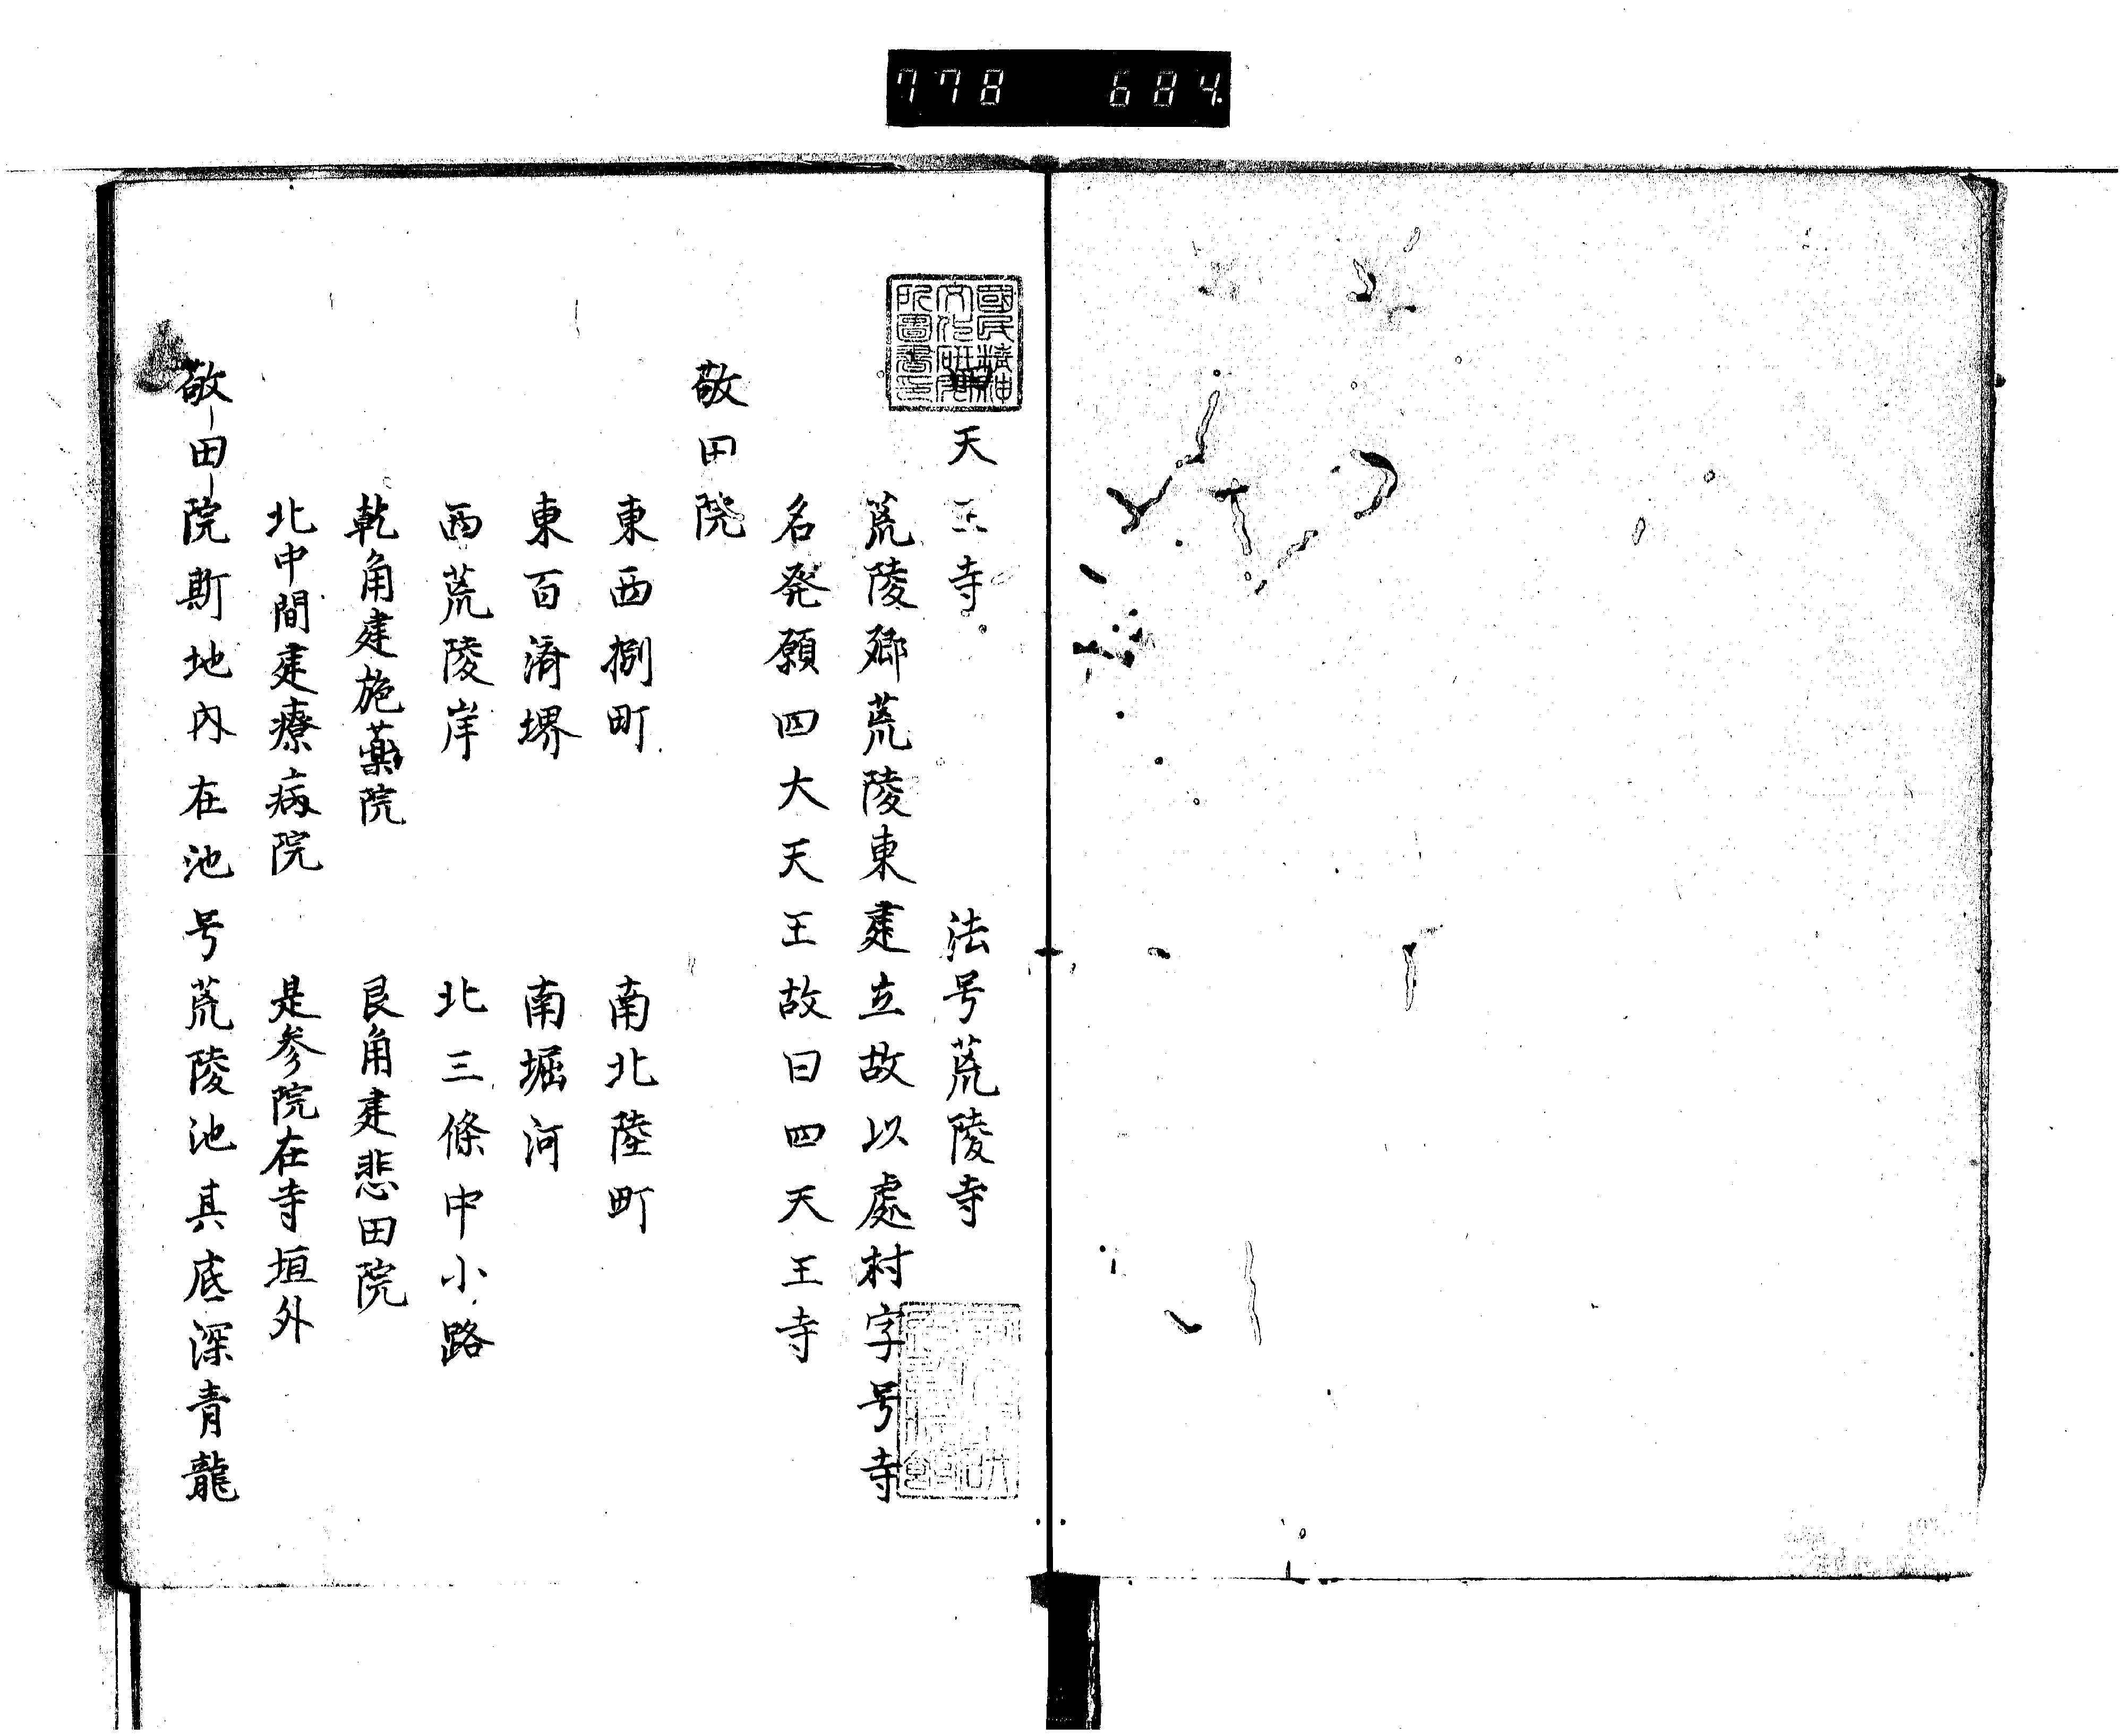 778 684
國民精神
文化研究
所圖書印
四天王寺 法号荒陵寺
荒陵郷荒陵東建立故以處村字号寺
名発願四大天王故曰四天王寺
敬田院
東西捌町 南北陸町
東百済堺 南堀河
西荒陵岸 北三條中小路
乾角建施薬院 艮角建悲田院
北中間建療病院 是参院在寺垣外
敬田院斯地内在池号荒陵池其底深青龍